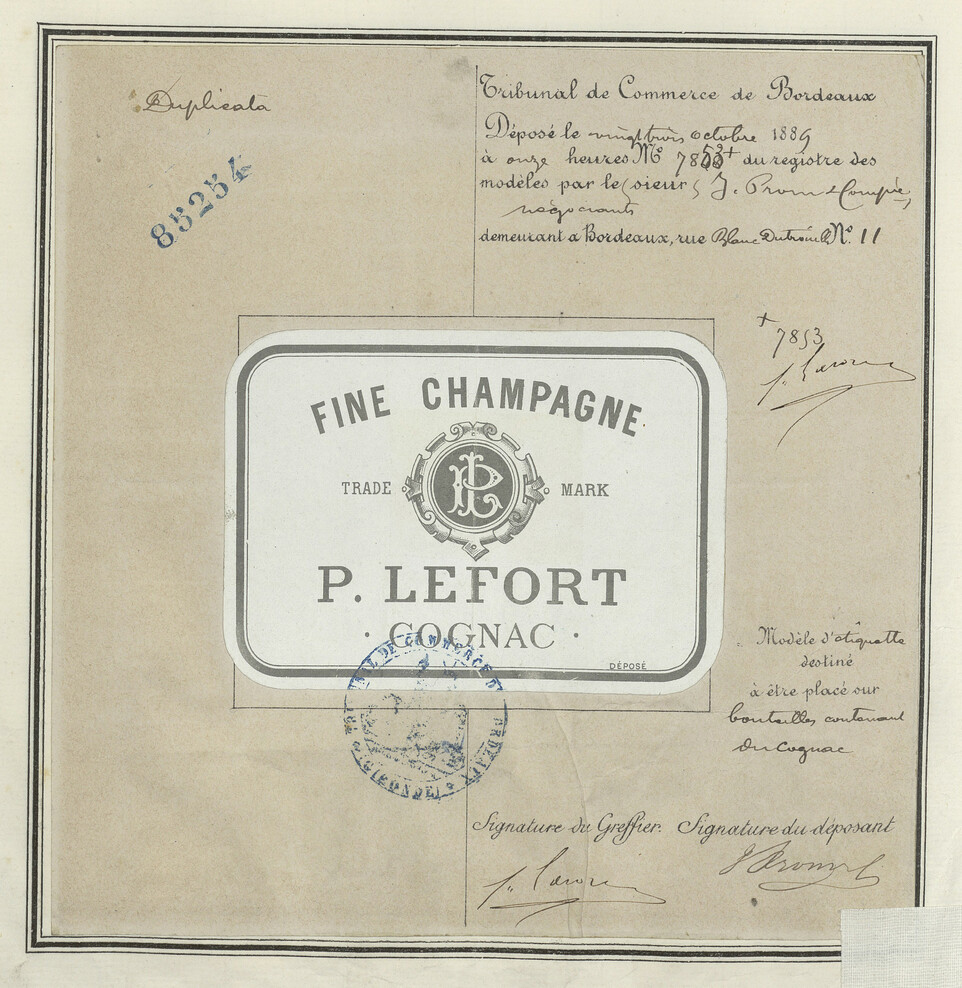 Duplicata
85254
Tribunal de Commerce de Bordeaux
Déposé le vingt trois octobre 1889
à onze heures Nº 7853+ du registre des
modèles par le sieurs J. Prom & Compie,
négociants
demeurant a Bordeaux, rue Blanc Dutrouilh Nº. 11
+ 7853
FINE CHAMPAGNE
TRADE MARK
P. LEFORT
· COGNAC ·
DÉPOSÉ
TRIBUNAL DE COMMERCE DE BORDEAUX
(GIRONDE)
Modèle d'étiquette
destiné
à être placé sur
bouteilles contenant
du Cognac
Signature du Greffier. Signature du déposant